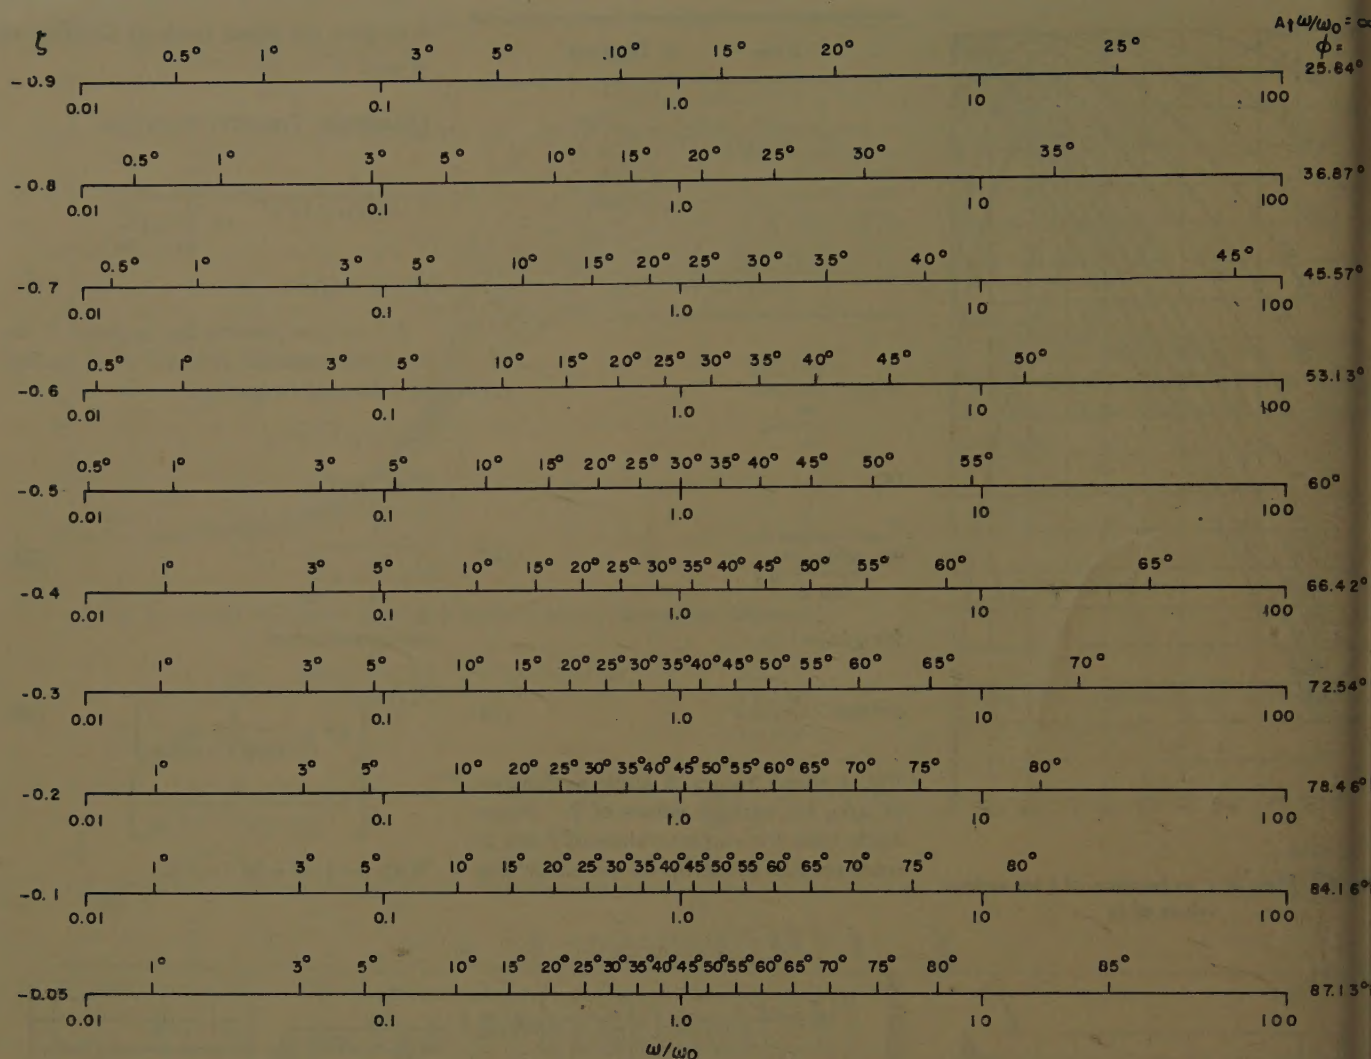 ζ
At ω/ω0 = ∞
φ =
0.5° 1° 3° 5° 10° 15° 20° 25°
-0.9 25.84°
0.01 0.1 1.0 10 100
0.5° 1° 3° 5° 10° 15° 20° 25° 30° 35°
-0.8 36.87°
0.01 0.1 1.0 10 100
0.5° 1° 3° 5° 10° 15° 20° 25° 30° 35° 40° 45°
-0.7 45.57°
0.01 0.1 1.0 10 100
0.5° 1° 3° 5° 10° 15° 20° 25° 30° 35° 40° 45° 50°
-0.6 53.13°
0.01 0.1 1.0 10 100
0.5° 1° 3° 5° 10° 15° 20° 25° 30° 35° 40° 45° 50° 55°
-0.5 60°
0.01 0.1 1.0 10 100
1° 3° 5° 10° 15° 20° 25° 30° 35° 40° 45° 50° 55° 60° 65°
-0.4 66.42°
0.01 0.1 1.0 10 100
1° 3° 5° 10° 15° 20° 25° 30° 35° 40° 45° 50° 55° 60° 65° 70°
-0.3 72.54°
0.01 0.1 1.0 10 100
1° 3° 5° 10° 15° 20° 25° 30° 35° 40° 45° 50° 55° 60° 65° 70° 75° 80°
-0.2 78.46°
0.01 0.1 1.0 10 100
1° 3° 5° 10° 15° 20° 25° 30° 35° 40° 45° 50° 55° 60° 65° 70° 75° 80°
-0.1 84.16°
0.01 0.1 1.0 10 100
1° 3° 5° 10° 15° 20° 25° 30° 35° 40° 45° 50° 55° 60° 65° 70° 75° 80° 85°
-0.05 87.13°
0.01 0.1 1.0 10 100
ω/ω0